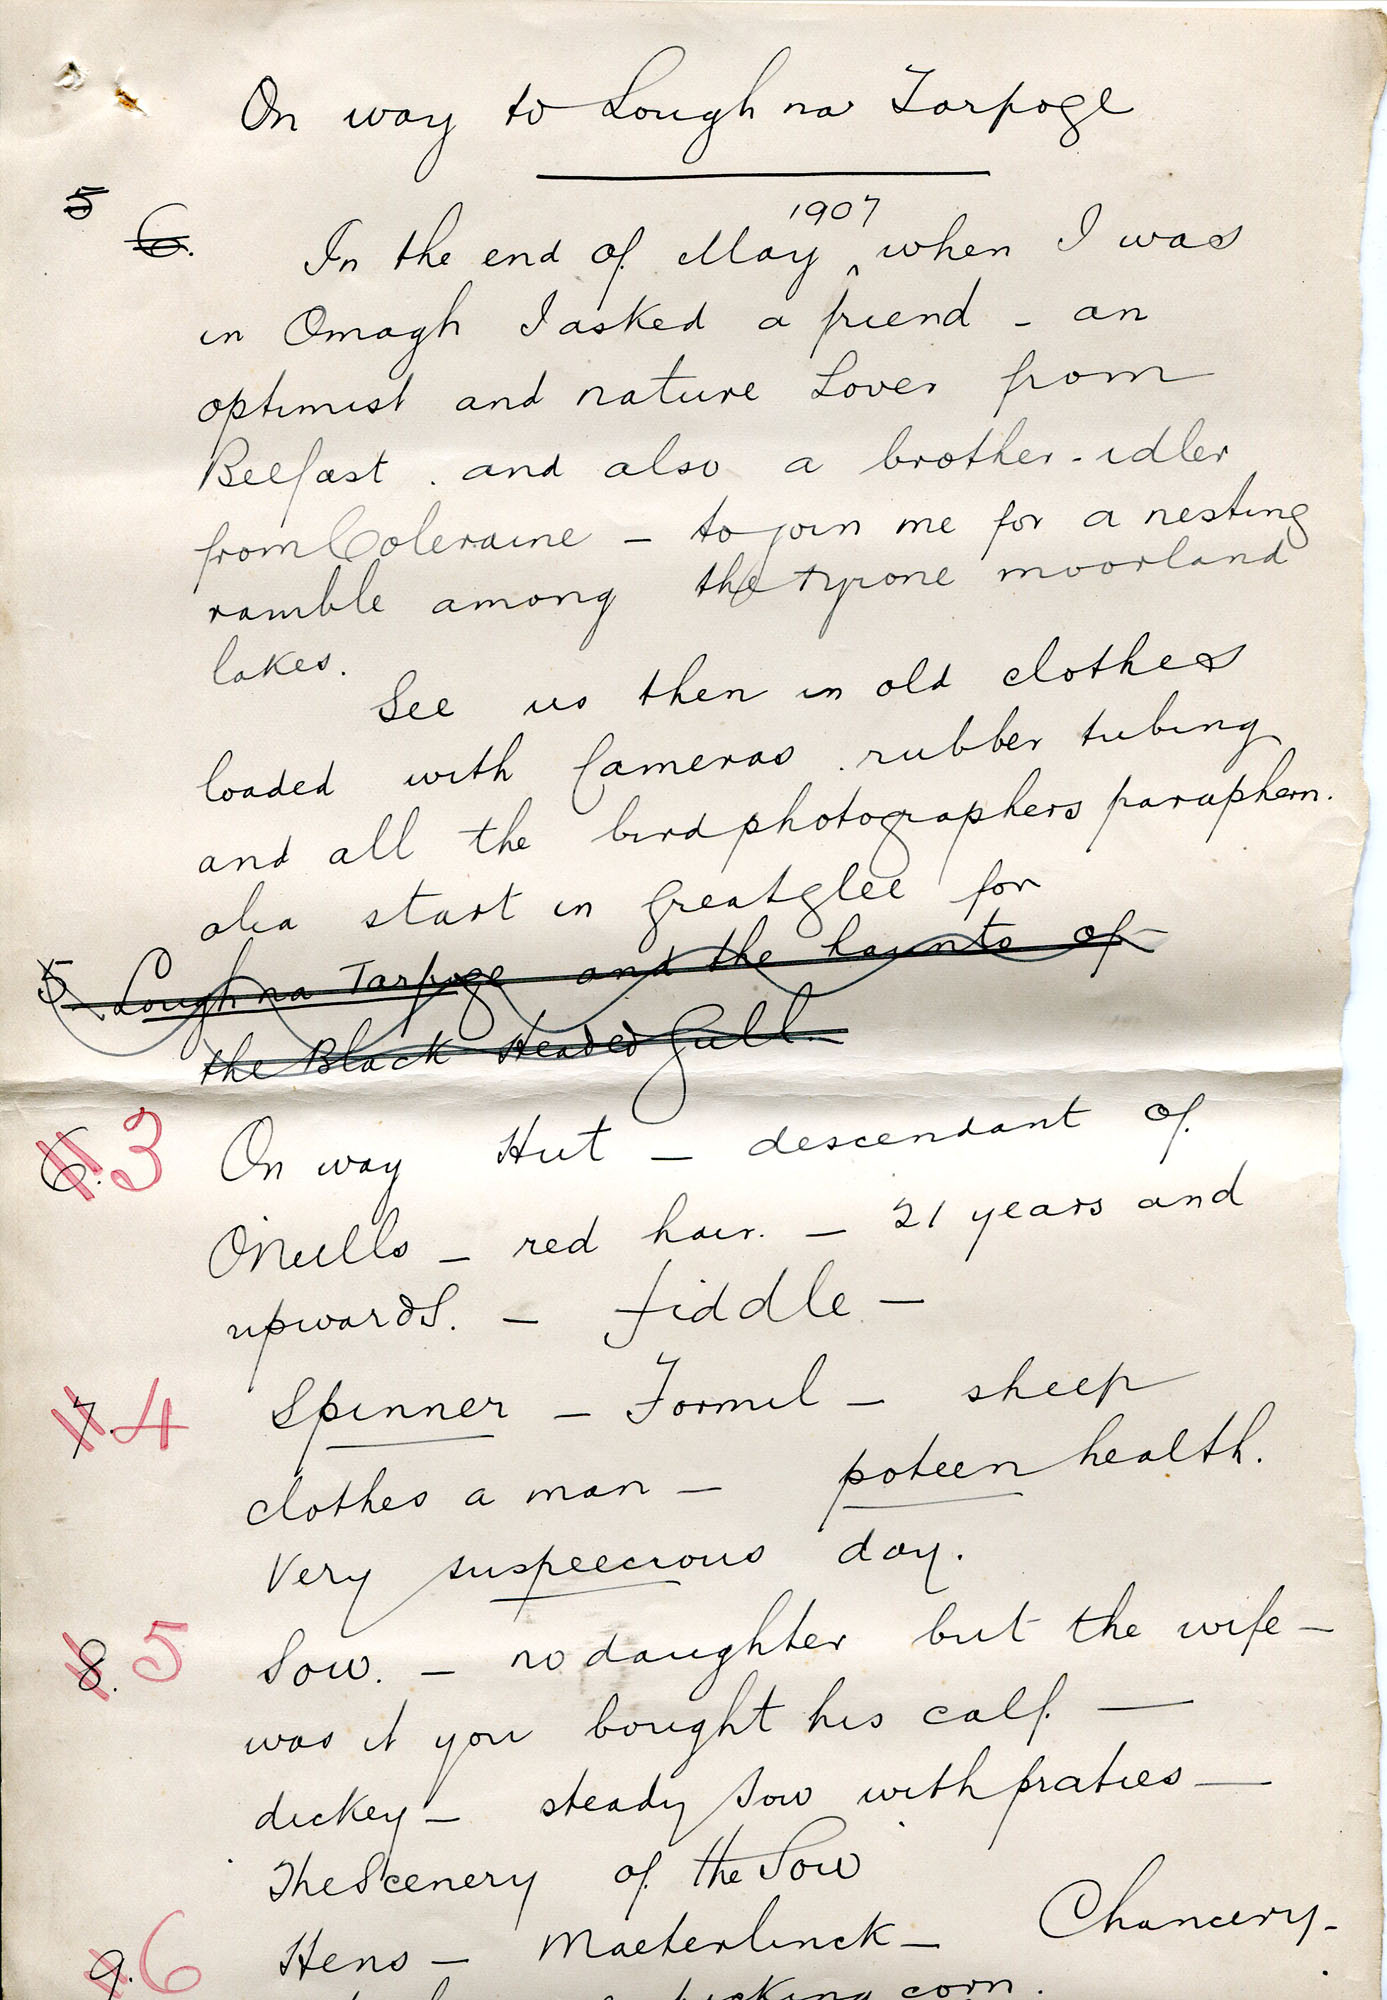 On way to Lough na Tarpoge
5
6.
1907
In the end of May ^ when I was
in Omagh I asked a friend - an
optimist and nature Lover from
Belfast . and also a brother-idler
from Coleraine - to join me for a nesting
ramble among the tyrone moorland
lakes.
See us then in old clothes
loaded with Cameras . rubber tubing
and all the bird photographers paraphern.
alia start in great glee for
5 Lough na Tarpoge and the haunts of
the Black Headed Gull.
6. 3 On way Hut - descendant of
O'Neills - red hair. - 21 years and
upwards. - fiddle -
7. 4 Spinner - Formil - sheep
clothes a man - poteen health.
Very suspeecious day.
8. 5 Sow. - no daughter but the wife -
was it you bought his calf. -
dickey - steady sow with praties -
The Scenery of the Sow
9. 6 Hens - Maeterlinck - Chancery -
picking corn.